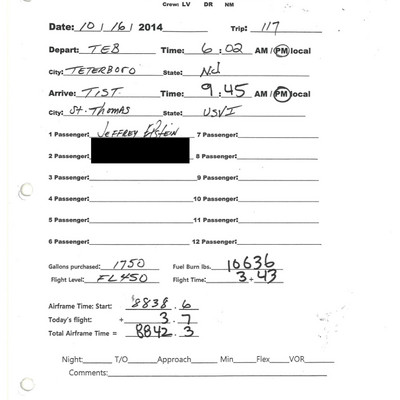 Crew: LV DR NM
Date: 10 / 16 / 2014 Trip: 117
Depart: TEB Time: 6:02 AM / PM local
City: TETERBORO State: NJ
Arrive: TIST Time: 9:45 AM / PM local
City: St. Thomas State: USVI
1 Passenger: Jeffrey Epstein 7 Passenger:
2 8 Passenger:
3 Passenger: 9 Passenger:
4 Passenger: 10 Passenger:
5 Passenger: 11 Passenger:
6 Passenger: 12 Passenger:
Gallons purchased: 1750 Fuel Burn lbs. 10636
Flight Level: FL450 Flight Time: 3+43
Airframe Time: Start: 8838.6
Today's flight: + 3.7
Total Airframe Time = 8842.3
Night: T/O Approach Min Flex VOR
Comments: